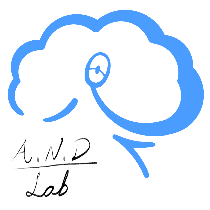 A.N.D
Lab